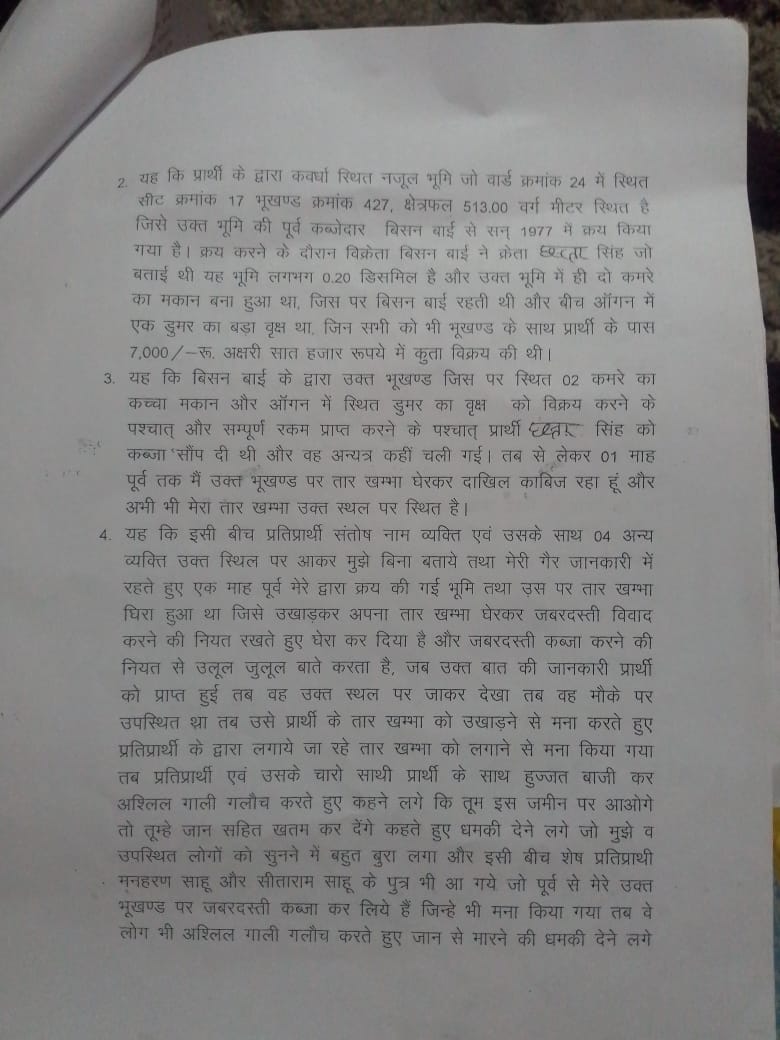 2. यह कि प्रार्थी के द्वारा कवर्धा स्थित नजूल भूमि जो वार्ड क्रमांक 24 में स्थित
सीट क्रमांक 17 भूखण्ड क्रमांक 427, क्षेत्रफल 513.00 वर्ग मीटर स्थित है
जिसे उक्त भूमि की पूर्व कब्जेदार बिसन बाई से सन् 1977 में क्रय किया
गया है। क्रय करने के दौरान विक्रेता बिसन बाई ने क्रेता सिंह जो
बताई थी यह भूमि लगभग 0.20 डिसमिल है और उक्त भूमि में ही दो कमरे
का मकान बना हुआ था, जिस पर बिसन बाई रहती थी और बीच ऑगन में
एक डुमर का बड़ा वृक्ष था, जिन सभी को भी भूखण्ड के साथ प्रार्थी के पास
7,000/–रू. अक्षरी सात हजार रूपये में कुता विक्रय की थी।
3. यह कि बिसन बाई के द्वारा उक्त भूखण्ड जिस पर स्थित 02 कमरे का
कच्चा मकान और ऑगन में स्थित डुमर का वृक्ष को विक्रय करने के
पश्चात् और सम्पूर्ण रकम प्राप्त करने के पश्चात् प्रार्थी सिंह को
कब्जा सौंप दी थी और वह अन्यत्र कहीं चली गई। तब से लेकर 01 माह
पूर्व तक मैं उक्त भूखण्ड पर तार खम्भा घेरकर दाखिल काबिज रहा हूं और
अभी भी मेरा तार खम्भा उक्त स्थल पर स्थित है।
4. यह कि इसी बीच प्रतिप्रार्थी संतोष नाम व्यक्ति एवं उसके साथ 04 अन्य
व्यक्ति उक्त स्थिल पर आकर मुझे बिना बताये तथा मेरी गैर जानकारी में
रहते हुए एक माह पूर्व मेरे द्वारा क्रय की गई भूमि तथा उस पर तार खम्भा
घिरा हुआ था जिसे उखाड़कर अपना तार खम्भा घेरकर जबरदस्ती विवाद
करने की नियत रखते हुए घेरा कर दिया है और जबरदस्ती कब्जा करने की
नियत से उलूल जुलूल बाते करता है, जब उक्त बात की जानकारी प्रार्थी
को प्राप्त हुई तब वह उक्त स्थल पर जाकर देखा तब वह मौके पर
उपस्थित था तब उसे प्रार्थी के तार खम्भा को उखाड़ने से मना करते हुए
प्रतिप्रार्थी के द्वारा लगाये जा रहे तार खम्भा को लगाने से मना किया गया
तब प्रतिप्रार्थी एवं उसके चारो साथी प्रार्थी के साथ हुज्जत बाजी कर
अश्लिल गाली गलौच करते हुए कहने लगे कि तूम इस जमीन पर आओगे
तो तूम्हे जान सहित खतम कर देंगे कहते हुए धमकी देने लगे जो मुझे व
उपस्थित लोगों को सुनने में बहुत बुरा लगा और इसी बीच शेष प्रतिप्रार्थी
मनहरण साहू और सीताराम साहू के पुत्र भी आ गये जो पूर्व से मेरे उक्त
भूखण्ड पर जबरदस्ती कब्जा कर लिये हैं जिन्हे भी मना किया गया तब वे
लोग भी अश्लिल गाली गलौच करते हुए जान से मारने की धमकी देने लगे